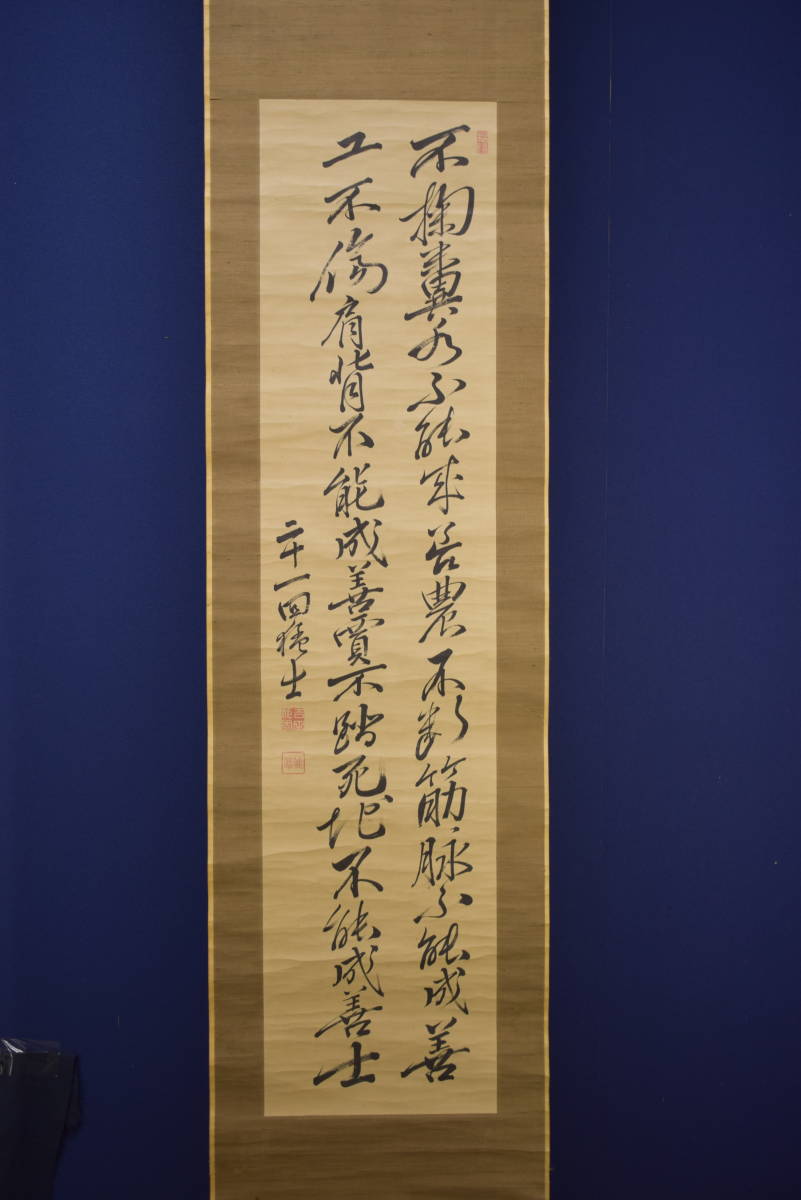 不掬糞水不能成善農不断筋脉不能成善
工不傷肩背不能成善賈不踏死地不能成善士
二十一回猛士